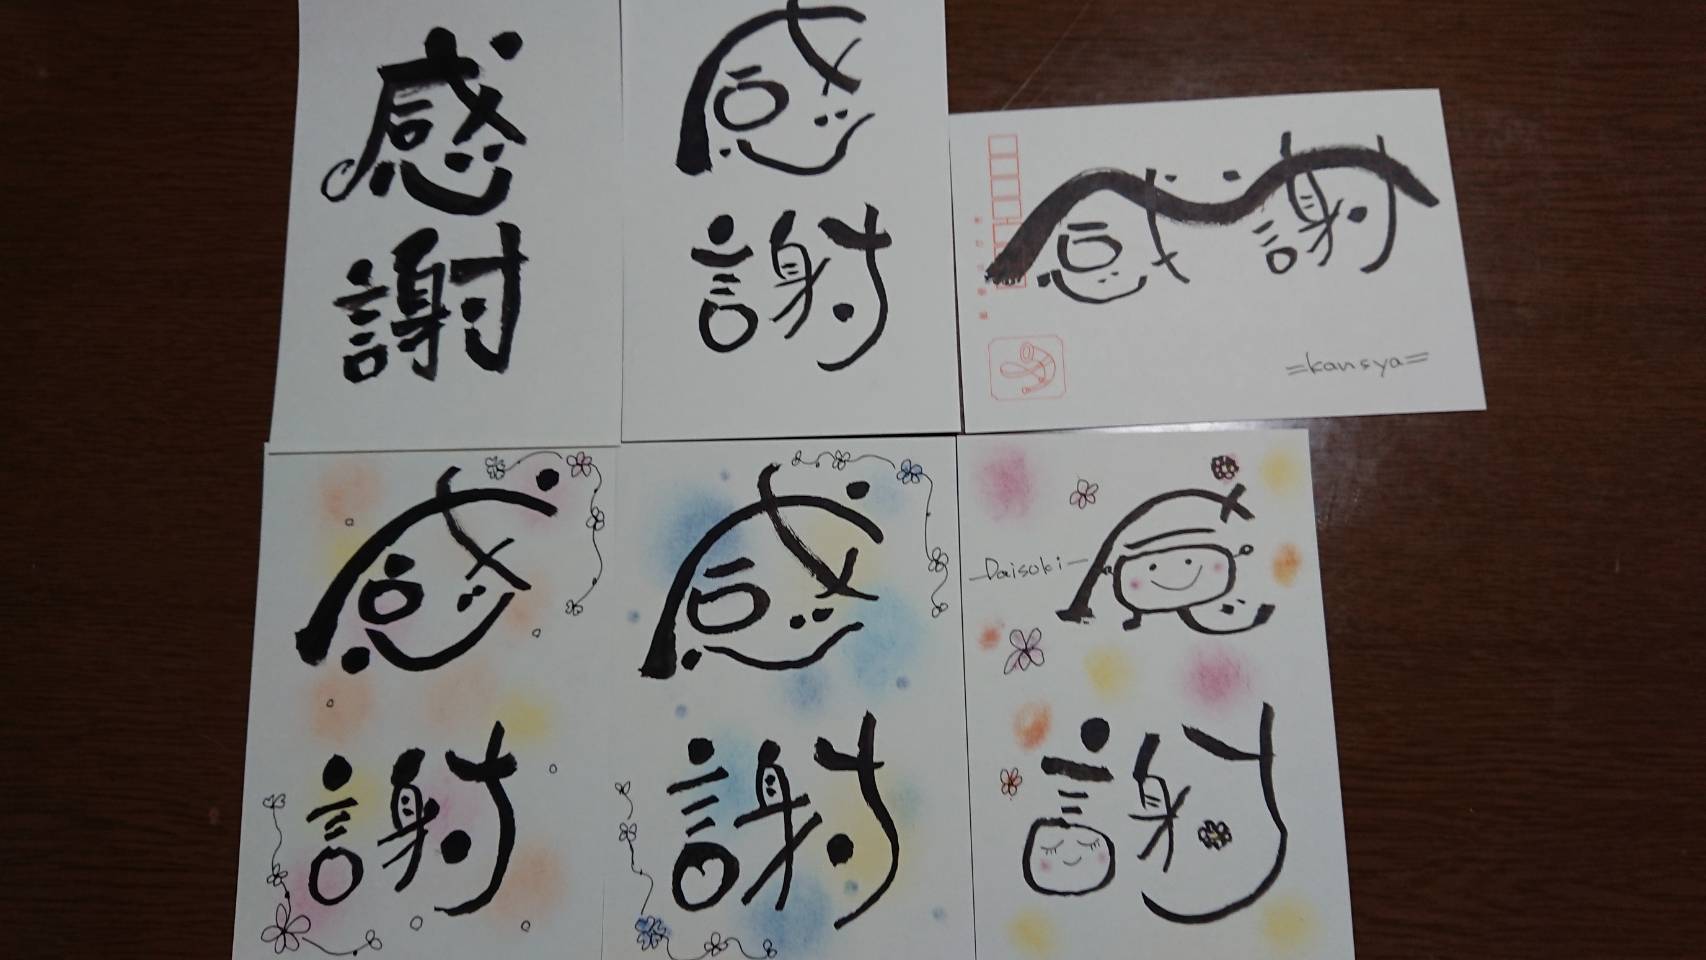 感
謝
感
謝
感謝
=kansya=
感
謝
感
謝
-Daisuki-
感
謝